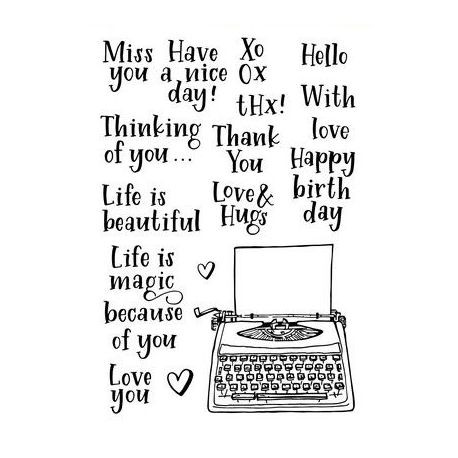 Miss
you
Have
a nice
day!
Xo
Ox
tHx!
Hello
With
love
Thinking
of you...
Thank
You
Happy
birth
day
Life is
beautiful
Love&
Hugs
Life is
magic
because
of you
Love
you